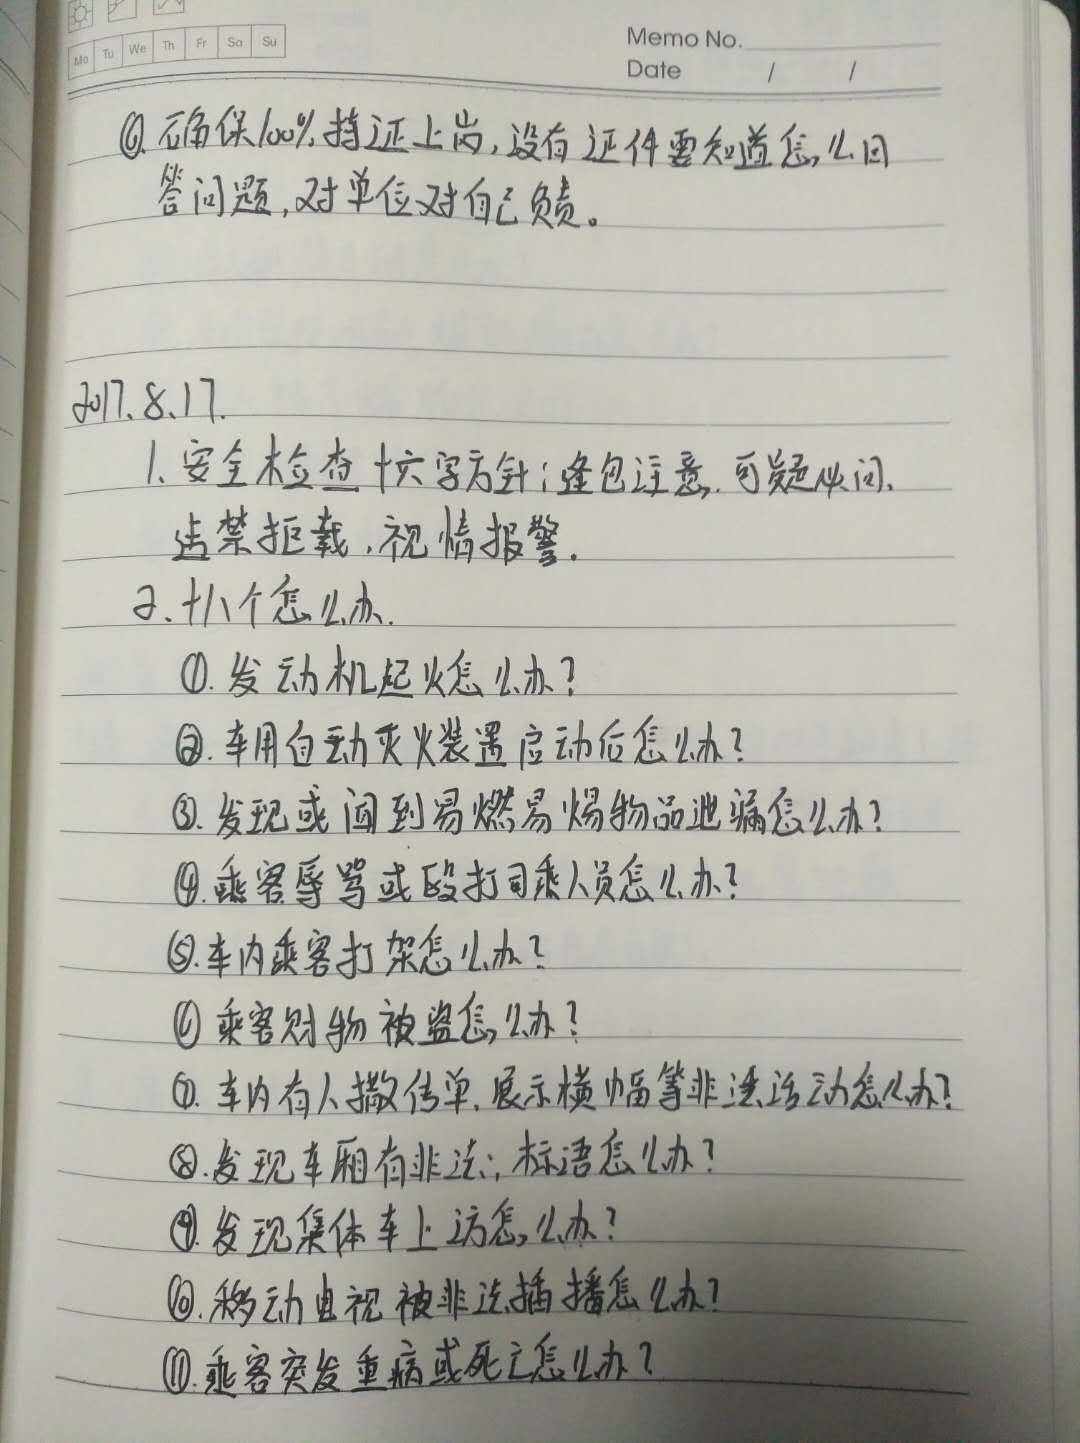 Mo Tu We Th Fr Sa Su
Memo No.
Date / /
⑥.确保100%持证上岗,没有证件要知道怎么回
答问题,对单位对自己负责。
2017.8.17.
1.安全检查十六字方针:逢包注意,可疑必问,
违禁拒载,视情报警.
2.十八个怎么办.
①.发动机起火怎么办?
②.车用自动灭火装置启动后怎么办?
③.发现或闻到易燃易爆物品泄漏怎么办?
④.乘客辱骂或殴打司乘人员怎么办?
⑤.车内乘客打架怎么办?
⑥乘客财物被盗怎么办?
⑦.车内有人撒传单.展示横幅等非法活动怎么办?
⑧.发现车厢有非法,标语怎么办?
⑨.发现集体车上访怎么办?
⑩.移动电视被非法插播怎么办?
⑪.乘客突发重病或死亡怎么办?